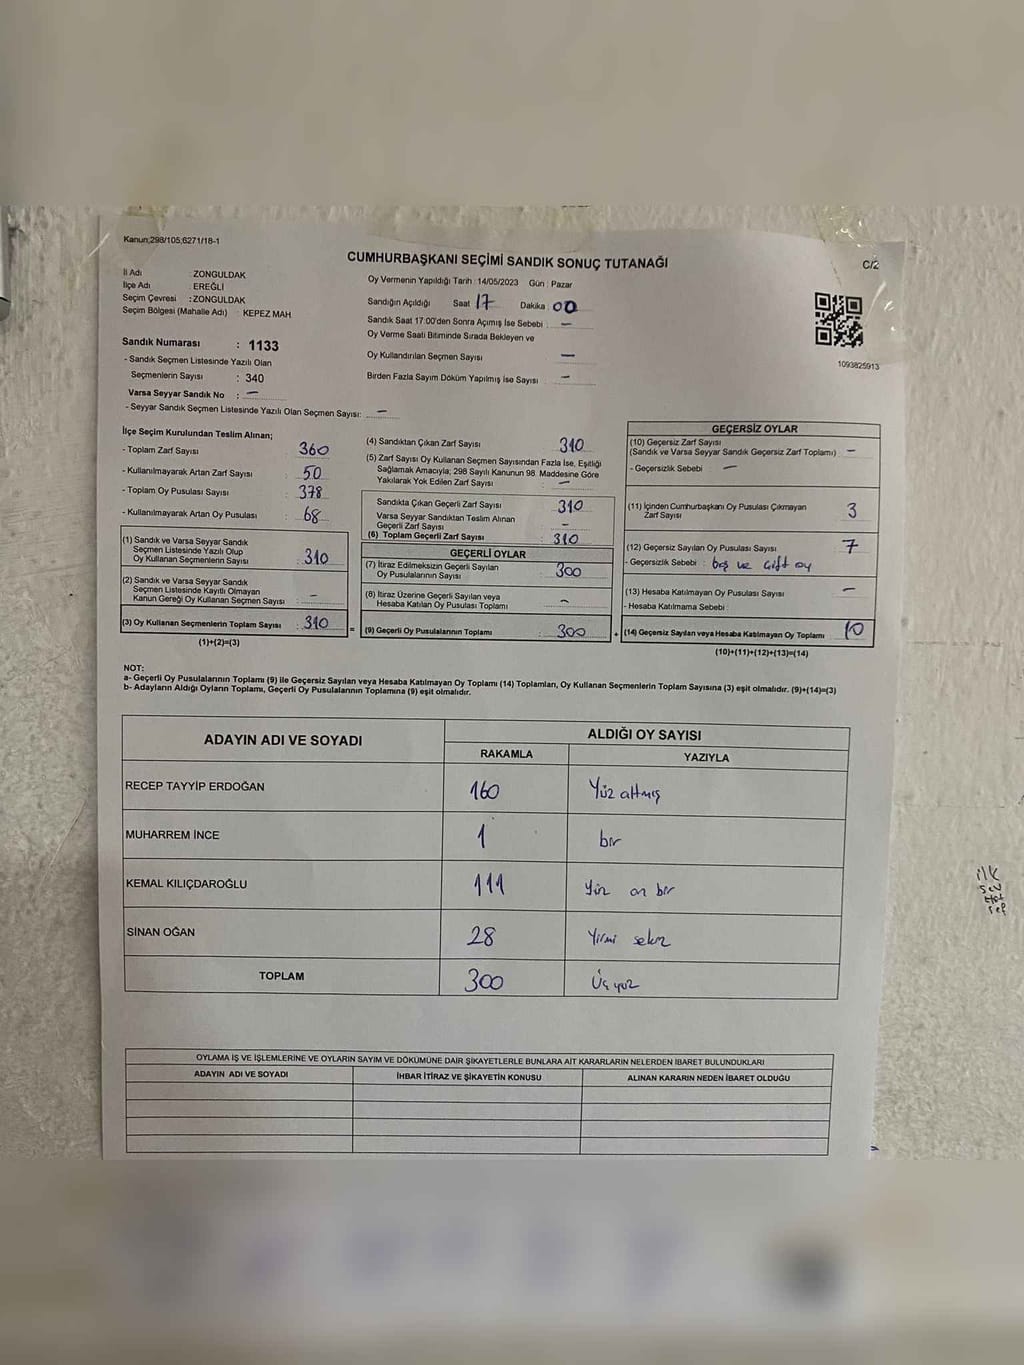 Kanun;298/105;6271/18-1
CUMHURBAŞKANI SEÇİMİ SANDIK SONUÇ TUTANAĞI
C/2
İl Adı : ZONGULDAK
İlçe Adı : EREĞLİ
Seçim Çevresi : ZONGULDAK
Seçim Bölgesi (Mahalle Adı) : KEPEZ MAH
Sandık Numarası : 1133
- Sandık Seçmen Listesinde Yazılı Olan
Seçmenlerin Sayısı : 340
Varsa Seyyar Sandık No : —
- Seyyar Sandık Seçmen Listesinde Yazılı Olan Seçmen Sayısı: —
Oy Vermenin Yapıldığı Tarih : 14/05/2023 Gün : Pazar
Sandığın Açıldığı Saat 17 Dakika 00
Sandık Saat 17:00'den Sonra Açımış İse Sebebi : —
Oy Verme Saati Bitiminde Sırada Bekleyen ve
Oy Kullandırılan Seçmen Sayısı —
Birden Fazla Sayım Döküm Yapılmış İse Sayısı —
1093825913
İlçe Seçim Kurulundan Teslim Alınan;
- Toplam Zarf Sayısı : 360
- Kullanılmayarak Artan Zarf Sayısı : 50
- Toplam Oy Pusulası Sayısı : 378
- Kullanılmayarak Artan Oy Pusulası : 68
(1) Sandık ve Varsa Seyyar Sandık
Seçmen Listesinde Yazılı Olup
Oy Kullanan Seçmenlerin Sayısı : 310
(2) Sandık ve Varsa Seyyar Sandık
Seçmen Listesinde Kayıtlı Olmayan
Kanun Gereği Oy Kullanan Seçmen Sayısı : —
(3) Oy Kullanan Seçmenlerin Toplam Sayısı : 310
(1)+(2)=(3)
(4) Sandıktan Çıkan Zarf Sayısı : 310
(5) Zarf Sayısı Oy Kullanan Seçmen Sayısından Fazla İse, Eşitliği
Sağlamak Amacıyla; 298 Sayılı Kanunun 98. Maddesine Göre
Yakılarak Yok Edilen Zarf Sayısı : —
Sandıkta Çıkan Geçerli Zarf Sayısı : 310
Varsa Seyyar Sandıktan Teslim Alınan
Geçerli Zarf Sayısı : —
(6) Toplam Geçerli Zarf Sayısı : 310
GEÇERLİ OYLAR
(7) İtiraz Edilmeksizin Geçerli Sayılan
Oy Pusulalarının Sayısı : 300
(8) İtiraz Üzerine Geçerli Sayılan veya
Hesaba Katılan Oy Pusulası Toplamı : —
= (9) Geçerli Oy Pusulalarının Toplamı : 300
GEÇERSİZ OYLAR
(10) Geçersiz Zarf Sayısı
(Sandık ve Varsa Seyyar Sandık Geçersiz Zarf Toplamı) —
- Geçersizlik Sebebi —
(11) İçinden Cumhurbaşkanı Oy Pusulası Çıkmayan
Zarf Sayısı 3
(12) Geçersiz Sayılan Oy Pusulası Sayısı 7
- Geçersizlik Sebebi : boş ve çift oy
(13) Hesaba Katılmayan Oy Pusulası Sayısı —
- Hesaba Katılmama Sebebi :
+ (14) Geçersiz Sayılan veya Hesaba Katılmayan Oy Toplamı 10
(10)+(11)+(12)+(13)=(14)
NOT:
a- Geçerli Oy Pusulalarının Toplamı (9) ile Geçersiz Sayılan veya Hesaba Katılmayan Oy Toplamı (14) Toplamları, Oy Kullanan Seçmenlerin Toplam Sayısına (3) eşit olmalıdır. (9)+(14)=(3)
b- Adayların Aldığı Oyların Toplamı, Geçerli Oy Pusulalarının Toplamına (9) eşit olmalıdır.
ADAYIN ADI VE SOYADI
ALDIĞI OY SAYISI
RAKAMLA YAZIYLA
RECEP TAYYİP ERDOĞAN 160 Yüz altmış
MUHARREM İNCE 1 bir
KEMAL KILIÇDAROĞLU 111 Yüz on bir
SİNAN OĞAN 28 Yirmi sekiz
TOPLAM 300 Üç yüz
OYLAMA İŞ VE İŞLEMLERİNE VE OYLARIN SAYIM VE DÖKÜMÜNE DAİR ŞİKAYETLERLE BUNLARA AİT KARARLARIN NELERDEN İBARET BULUNDUKLARI
ADAYIN ADI VE SOYADI İHBAR İTİRAZ VE ŞİKAYETİN KONUSU ALINAN KARARIN NEDEN İBARET OLDUĞU